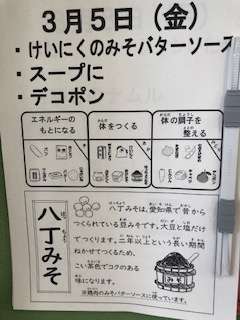 3月5日(金)
・けいにくのみそバターソース
・スープに
・デコポン
エネルギーの
もとになる
体をつくる
体の調子を
整える
八丁みそ
八丁みそは、愛知県で昔から
つくられている豆みそです。大豆と塩だけ
でつくります。二年以上という長い期間
ねかせてつくるため、
こい茶色でコクのある
味になります。
※鶏肉のみそバターソースに使っています。